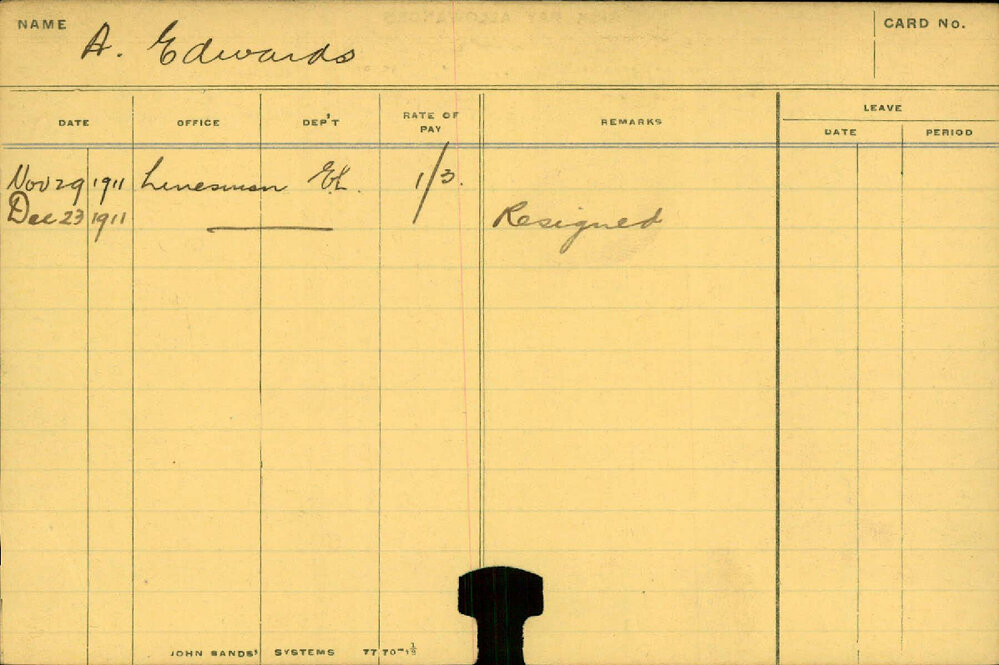 NAME A. Edwards CARD No.
DATE OFFICE DEP'T RATE OF PAY REMARKS LEAVE
DATE PERIOD
Nov 29 1911 Linesman EL. 1/3.
Dec 23 1911 Resigned
JOHN SANDS' SYSTEMS 7770